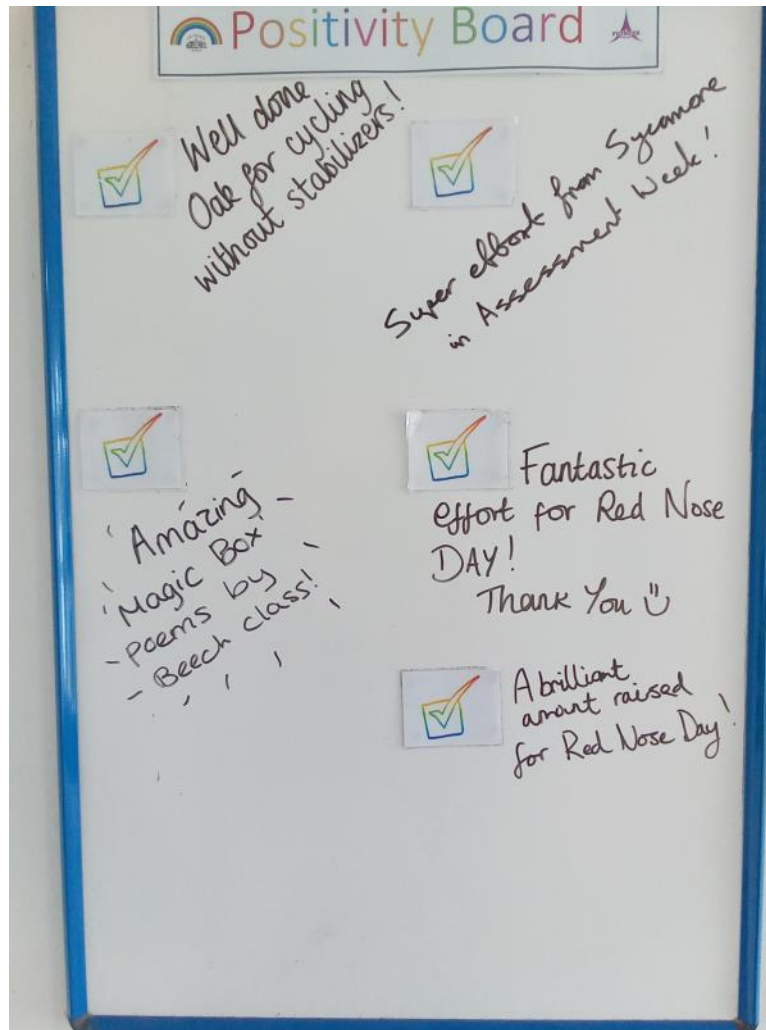 Positivity Board
Well done
Oak for cycling
without stabilizers!
Super effort from Sycamore
in Assessment Week!
Amazing
Magic Box
Poems by
Beech class!
Fantastic
effort for Red Nose
DAY!
Thank You
A brilliant
amount raised
for Red Nose Day!